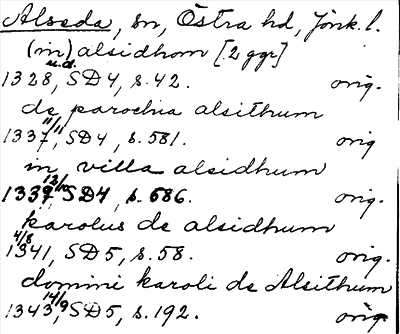 Alseda, sn, Östra hd, Jönk. l.
(in) alsidhom [2 ggr]
u.d.
1328, SD4, s. 42. orig.
de parochia alsithum
1337 11/11, SD4, s. 581. orig
in villa alsidhum
1339 12/10 SD4, s. 686. orig.
karolus de alsidhum
4/8
1341, SD5, s. 58. orig.
domini karoli de Alsithum
1343 14/9, SD5, s. 192. orig